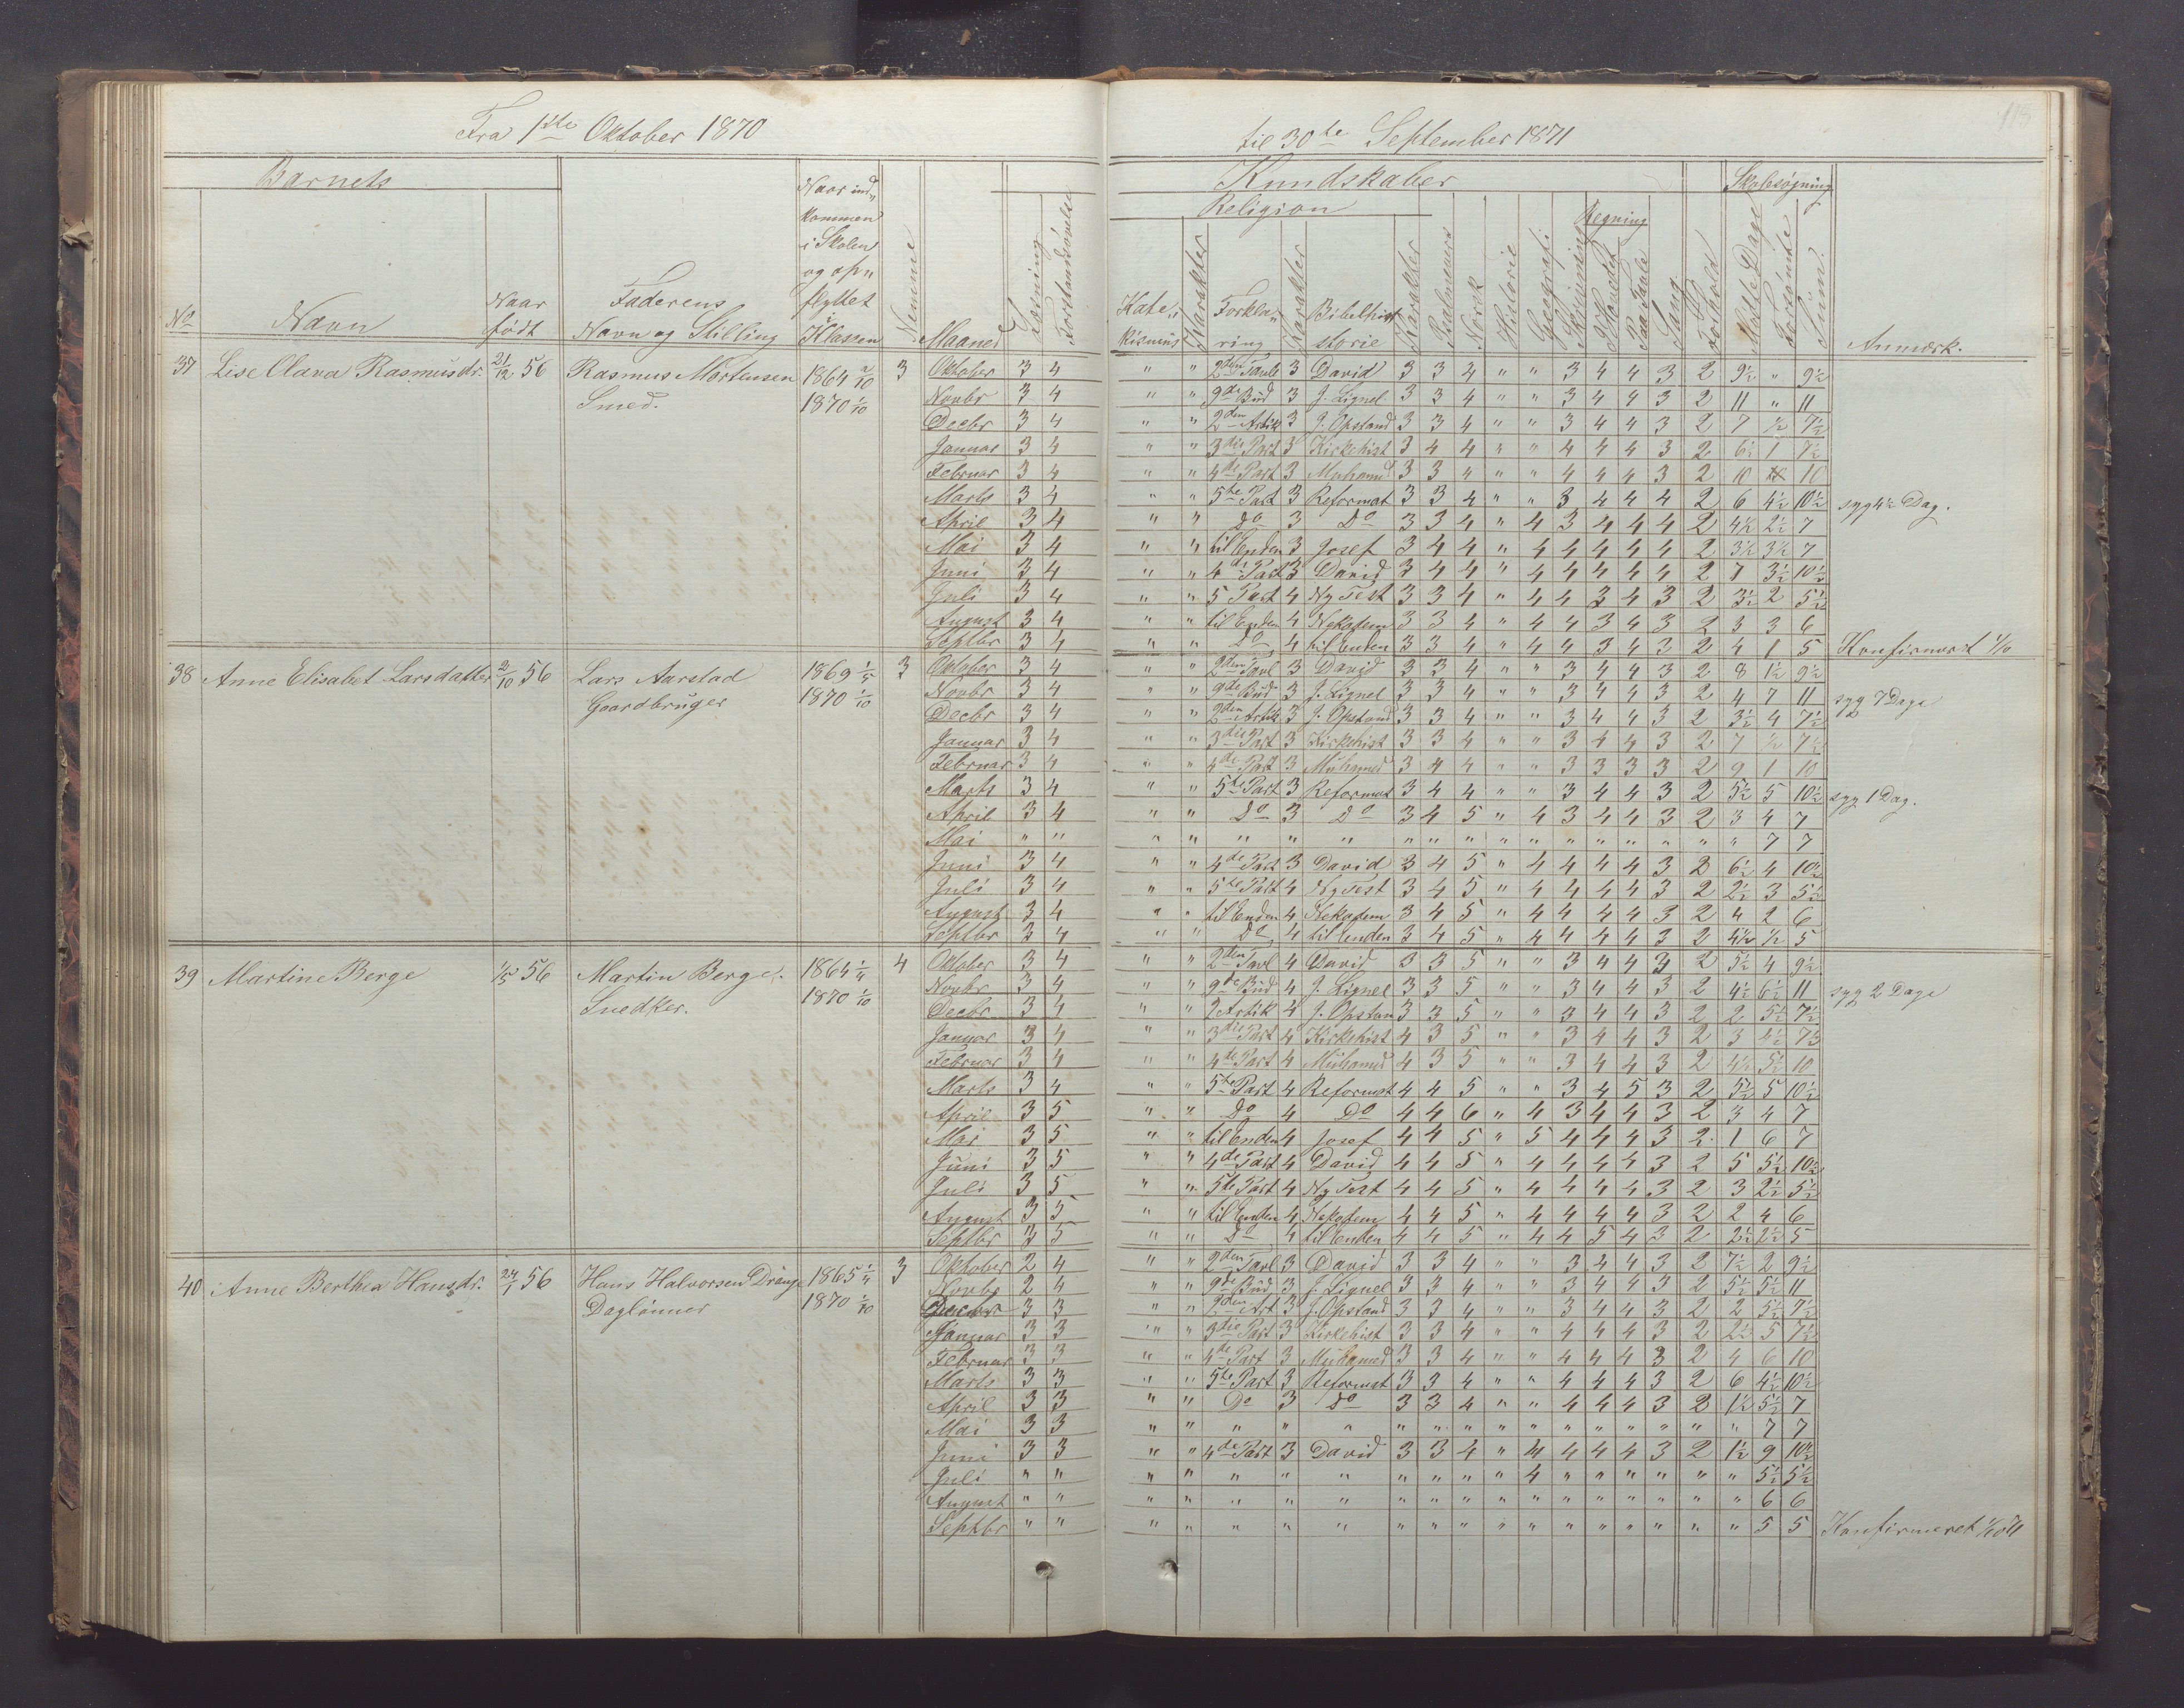 Fra 1ste Oktober 1870
til 30te September 1871
Barnets
Kundskaber
Skolesøgning
Religion
Regning
No
Navn
Naar født
Faderens Navn og Stilling
Naar ind„ kommen i Skolen og op„ flyttet i Klassen
Nemme
Maaned
Læsning
Forstandsøvelse
Kate„ kismus
Karakter
Forkla„ ring
Karakter
Bibelhist storie
Karakter
Psalmevers
Norsk
Historie
Geografi
Skrivning
I Hovedet
Paa Tavle
Sang
Forhold
Mødte Dage
Forsømte
Sum.
Anmærk.
37 Lise Clara Rasmusdr. 21/12 56 Rasmus Mortensen 1864 3 Oktober 3 4 " " 2den Tavle 3 David 3 3 4 " " 3 4 4 3 2 9½ " 9½
Smed. 1870 1/10 Novbr 3 4 " " 9de Bud 3 J. Lignel 3 3 4 " " 3 4 4 3 2 11 " 11
Decbr 3 4 " " 2den Artik 3 J. Opstand 3 3 4 " " 3 4 4 3 2 7 ½ 7½
Januar 3 4 " " 3die Part 3 Kirkehist 3 4 4 " " 4 4 4 3 2 6½ 1 7½
Februar 3 4 " " 4de Part 3 Muhamed 3 3 4 " " 4 4 4 3 2 10 10
Marts 3 4 " " 5te Part 3 Reformat 3 3 4 " " 3 4 4 4 2 6 4½ 10½ syg 4½ Dag.
April 3 4 " " Do 3 Do 3 3 4 " 4 3 4 4 4 2 4½ 2½ 7
Mai 3 4 " " til Enden 3 Josef 3 4 4 " 4 4 4 4 4 2 3½ 3½ 7
Juni 3 4 " " 4de Part 3 David 3 4 4 " 4 4 4 4 4 2 7 3½ 10½
Juli 3 4 " " 5 Part 4 Ny Test 3 3 4 " 4 4 3 4 3 2 3½ 2 5½
August 3 4 " " til Enden 4 Nekodem 3 3 4 " 4 4 3 4 3 2 3 3 6
Septbr 3 4 " " Do 4 til Enden 3 3 4 " 4 4 3 4 3 2 4 1 5 Konfirmert 1/10
38 Anne Elisabet Larsdatter 2/10 56 Lars Aarstad 1869 1/5 3 Oktober 3 4 " " 2den Tavl 3 David 3 3 4 " " 3 4 4 3 2 8 1½ 9½
Gaardbruger 1870 1/10 Novbr 3 4 " " 9de Bud 3 J. Lignel 3 3 4 " " 3 4 4 3 2 4 7 11 syg 7 Dage
Decbr 3 4 " " 2den Artik 3 J. Opstand 3 3 4 " " 3 4 4 3 2 3½ 4 7½
Januar 3 4 " " 3die Part 3 Kirkehist 3 3 4 " " 3 4 4 3 2 7 ½ 7½
Februar 3 4 " " 4de Part 3 Muhamed 3 4 4 " " 3 3 3 3 2 9 1 10
Marts 3 4 " " 5te Part 3 Reformat 3 4 4 " " 3 4 4 3 2 5½ 5 10½ syg 1 Dag.
April 3 4 " " Do 3 Do 3 4 5 " 4 3 4 4 3 2 3 4 7
Mai " " " " " " " " " " " " " " " " " " 7 7
Juni 3 4 " " 4de Part 3 David 3 4 5 " 4 4 4 4 3 2 6½ 4 10½
Juli 3 4 " " 5te Part 4 Ny Test 3 4 5 " 4 4 4 4 3 2 2½ 3 5½
August 3 4 " " til Enden 4 Nekodem 3 4 5 " 4 4 4 4 3 2 4 2 6
Septbr 3 4 " " Do 4 til Enden 3 4 5 " 4 4 4 4 3 2 4½ ½ 5
39 Martine Berge 1/5 56 Martin Berge. 1864 1/4 4 Oktober 3 4 " " 2den Tavl 4 David 3 3 5 " " 3 4 4 3 2 5½ 4 9½
Snedker. 1870 1/10 Novbr 3 4 " " 9de Bud 4 J. Lignel 3 3 5 " " 3 4 4 3 2 4½ 6½ 11 syg 2 Dage
Decbr 3 4 " " 2 Artik 4 J. Opstan 3 3 5 " " 3 4 4 3 2 2 5½ 7½
Januar 3 4 " " 3die Part 4 Kirkehist 4 3 5 " " 3 4 4 3 2 3 4½ 7½
Februar 3 4 " " 4de Part 4 Muhamed 4 3 5 " " 3 4 4 3 2 4½ 5½ 10
Marts 3 4 " " 5te Part 4 Reformat 4 4 5 " " 3 4 5 3 2 5½ 5 10½
April 3 5 " " Do 4 Do 4 4 6 " 4 3 4 4 3 2 3 4 7
Mai 3 5 " " til Enden 4 Josef 4 4 5 " 5 4 4 4 3 2 1 6 7
Juni 3 5 " " 4de Part 4 David 4 4 5 " 4 4 4 4 3 2 5 5½ 10½
Juli 3 5 " " 5te Part 4 Ny Test 4 4 5 " 4 4 4 4 3 2 3 2½ 5½
August 3 5 " " til Enden 4 Nekodem 4 4 5 " 4 4 4 4 3 2 2 4 6
Septbr 3 5 " " Do 4 til Enden 4 4 5 " 4 4 5 4 3 2 2½ 2½ 5
40 Anne Berthea Hansdr. 24/1 56 Hans Halvorsen Drange 1865 1/4 3 Oktober 2 4 " " 2den Tavl 3 David 3 3 4 " " 3 4 4 3 2 7½ 2 9½
Daglønner 1870 1/10 Novbr 2 4 " " 9de Bud 3 J. Lignel 3 3 4 " " 3 4 4 3 2 5½ 5½ 11
Decbr 3 3 " " 2den Art 3 J. Opstand 3 3 4 " " 3 4 4 3 2 2 5½ 7½
Januar 3 3 " " 3die Part 3 Kirkehist 3 3 4 " " 4 4 4 3 2 2½ 5 7½
Februar 3 3 " " 4de Part 3 Muhamed 3 3 4 " " 4 4 4 3 2 4 6 10
Marts 3 3 " " 5te Part 3 Reformat 3 3 4 " " 4 4 4 3 2 6 4½ 10½
April 3 3 " " Do 3 Do 3 3 4 " " 4 4 4 3 2 1½ 5½ 7
Mai 3 3 " " " " " " " " " " " " " " " " 7 7
Juni 3 3 " " 4de Part 3 David 3 3 4 " 4 4 4 4 3 2 1½ 9 10½
Juli " " " " " " " " " " " 4 " " " " " " 5½ 5½
August " " " " " " " " " " " " " " " " " " 6 6
Septbr " " " " " " " " " " " " " " " " " " 5 5 Konfirmeret 1/10 71